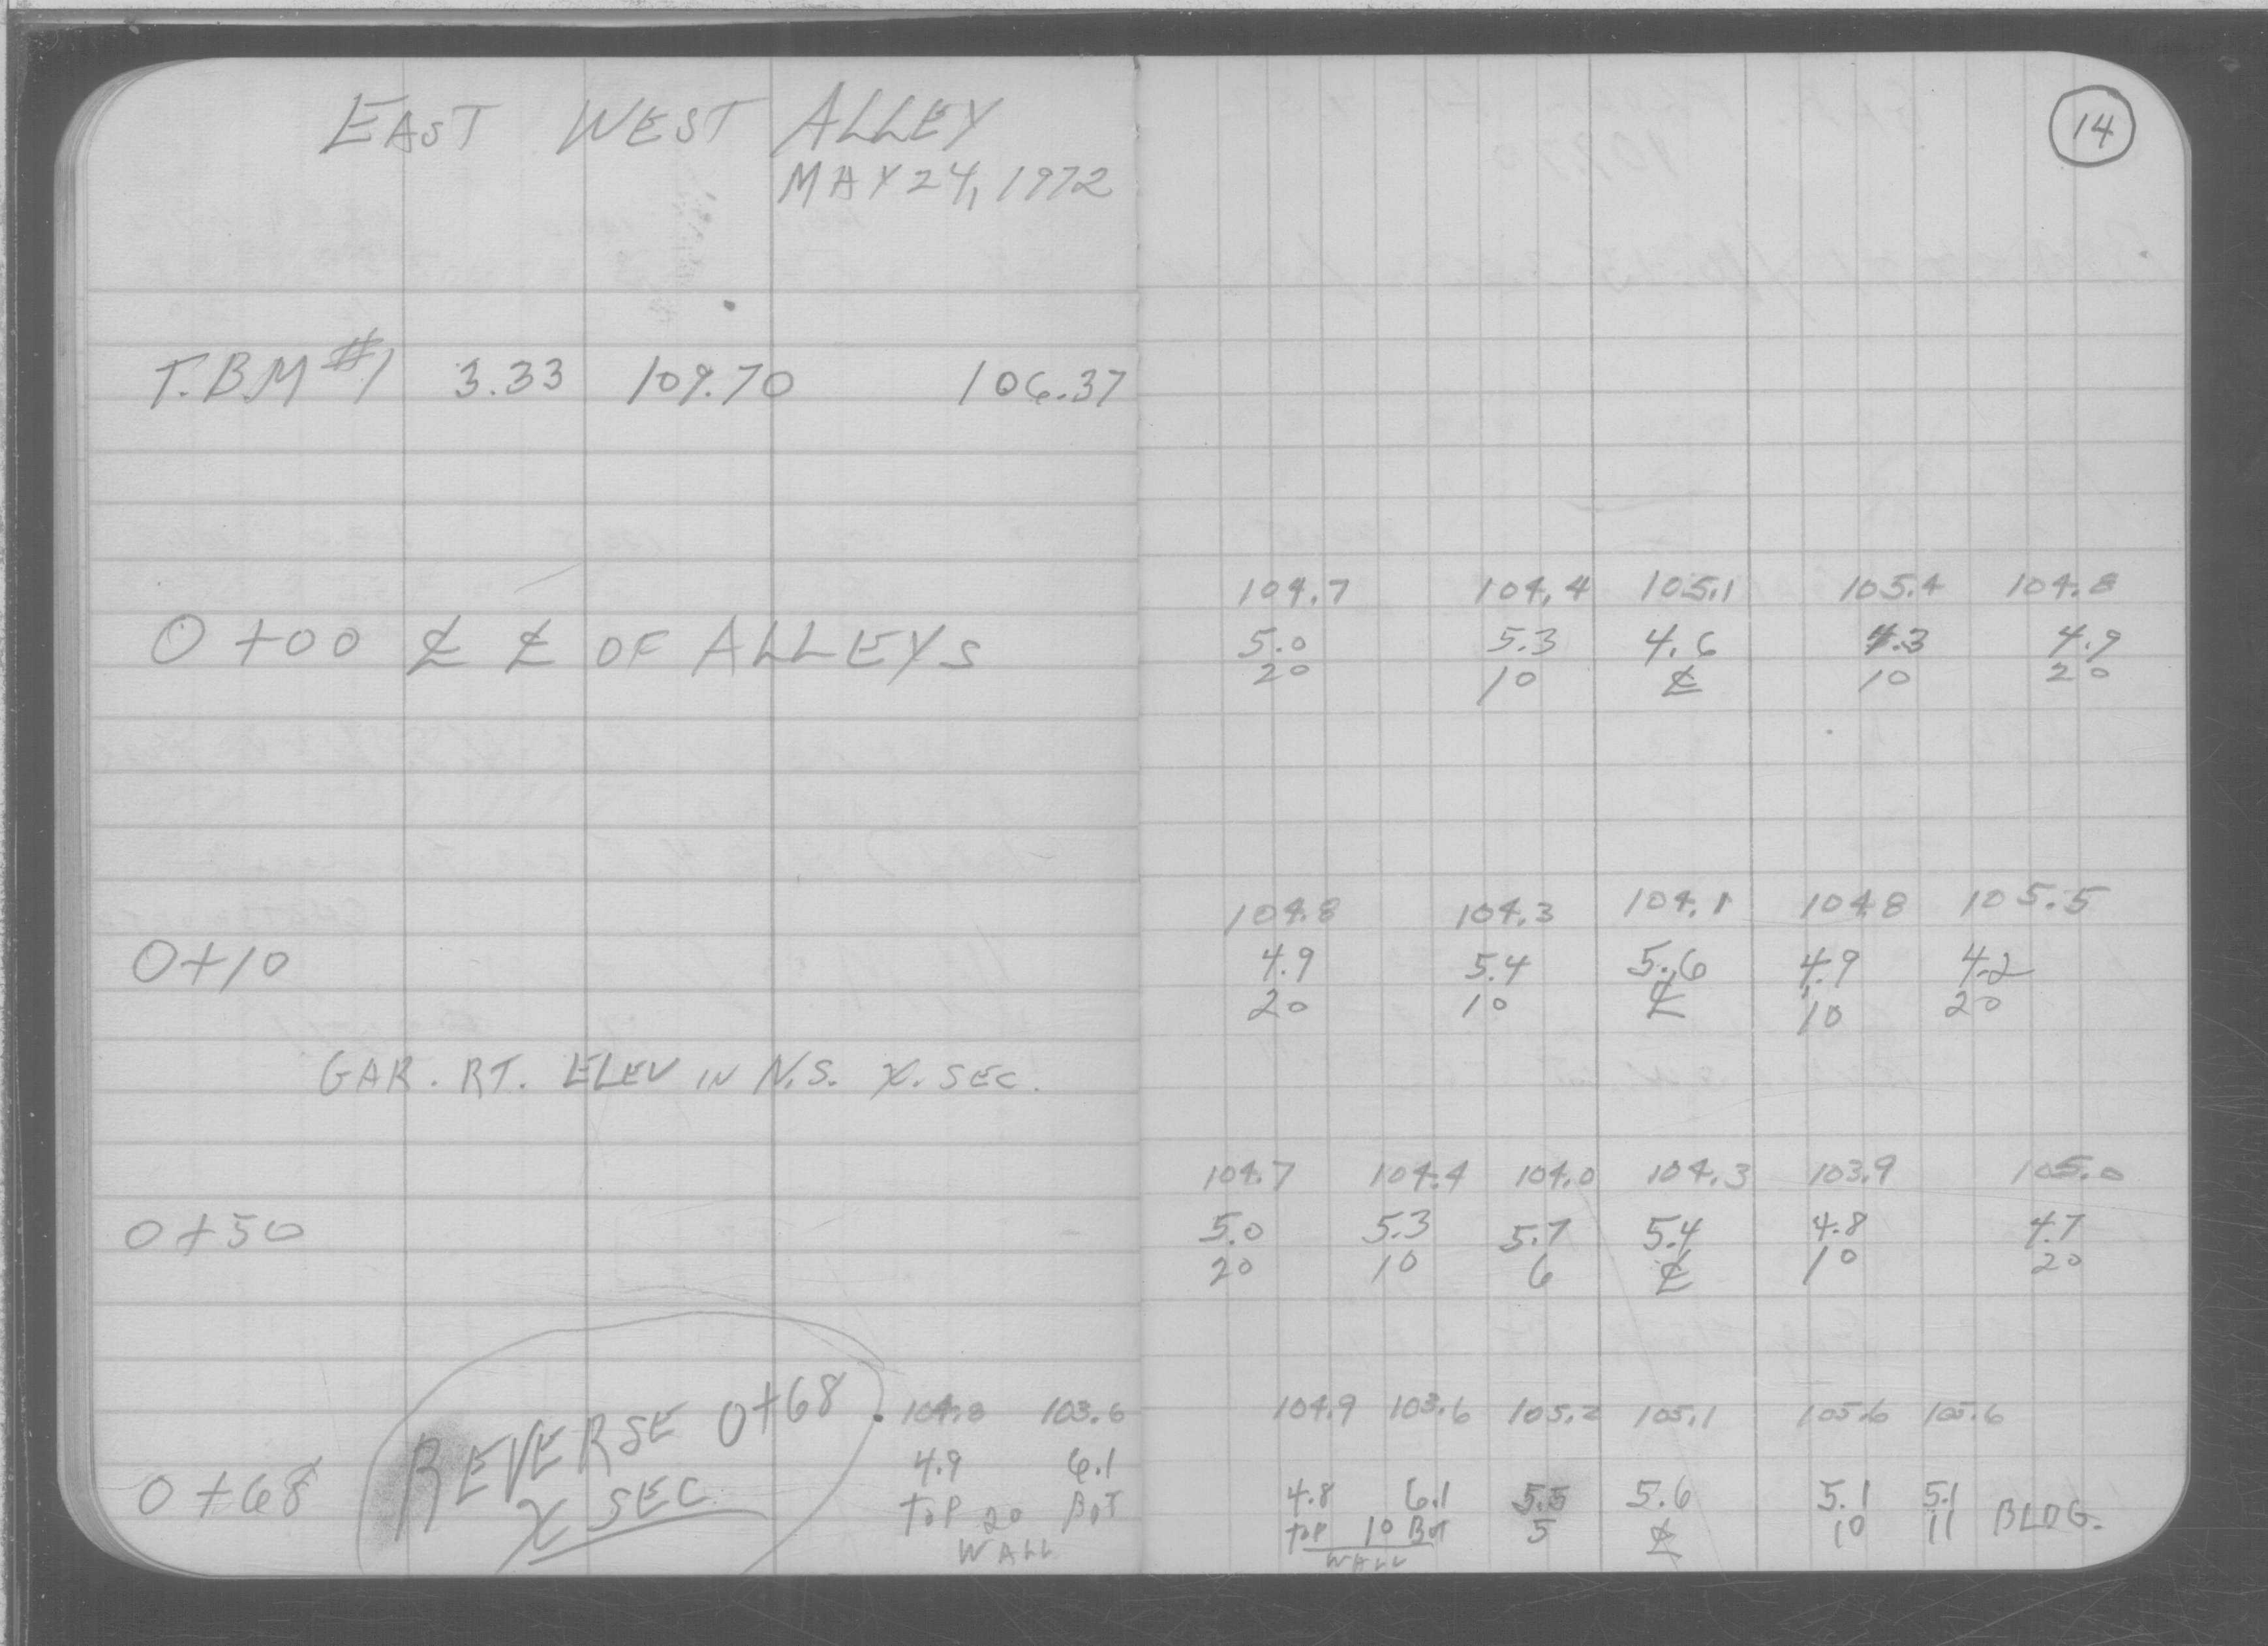 EAST WEST ALLEY
MAY 24, 1972
14
T.B.M #1 3.33 109.70 106.37
104.7 104.4 105.1 105.4 104.8
0+00 ℄ ℄ OF ALLEYS 5.0 5.3 4.6 4.3 4.9
20 10 ℄ 10 20
104.8 104.3 104.1 104.8 105.5
0+10 4.9 5.4 5.6 4.9 4.2
20 10 ℄ 10 20
GAR. RT. ELEV IN N.S. X. SEC.
104.7 104.4 104.0 104.3 103.9 105.0
0+50 5.0 5.3 5.7 5.4 4.8 4.7
20 10 6 ℄ 10 20
REVERSE 0+68 104.8 103.6 104.9 103.6 105.2 105.1 105.6 105.6
0+68 X SEC 4.9 6.1 4.8 6.1 5.5 5.6 5.1 5.1 BLDG.
TOP 20 BOT TOP 10 BOT 5 ℄ 10 11
WALL WALL